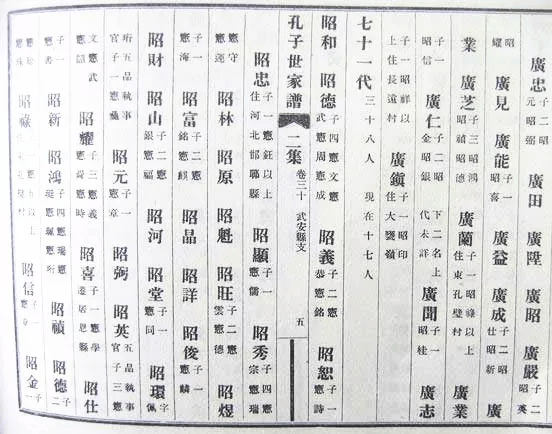 廣忠 子二昭元昭弼 廣田 廣陞 廣昭 廣嚴 子二昭英
昭耀 廣見 廣能 子一昭喜 廣益 廣成 子二昭仕昭新 廣
業 廣芝 子三昭鴻昭禎昭德 廣蘭 子一昭祿以上住東孔壁村 廣業
子一昭信 廣仁 子二昭金昭銀 下二名上代未詳 廣聞 子一昭桂 廣志
子一昭祥以上住上長遠村 廣鎮 子一昭印住大甕嶺
七十一代 三十八人 現在十七人
昭和 昭德 子四憲文憲武憲周憲成 昭義 子二憲恭憲銘 昭恕 子一憲詩
孔子世家譜 二集 卷三十 武安縣支 五
昭忠 子一憲鈺以上住河北邯鄲縣 昭顯 子一憲儒 昭秀 子二憲宗憲瑞
憲守憲蓮 昭林 昭原 昭魁 昭旺 子二憲雲憲德 昭煜
子一憲海 昭富 子二憲銘憲麒 昭晶 昭詳 昭俊 子一憲麟
昭財 昭山 子二憲銀憲福 昭河 昭堂 子一憲同 昭環 字佩
珩五品執事官子一憲 昭元 子一憲章 昭弼 昭英 五品執事官子三憲
文憲武憲詔 昭耀 子三憲義憲時 昭喜 子一憲學遷居恩縣 昭仕
子一憲書 昭新 昭鴻 子四憲瑞憲珽憲珮憲珩 昭禎 昭德 子二
憲珍憲珠 昭祿 以上 昭信 子一憲 昭金 子一